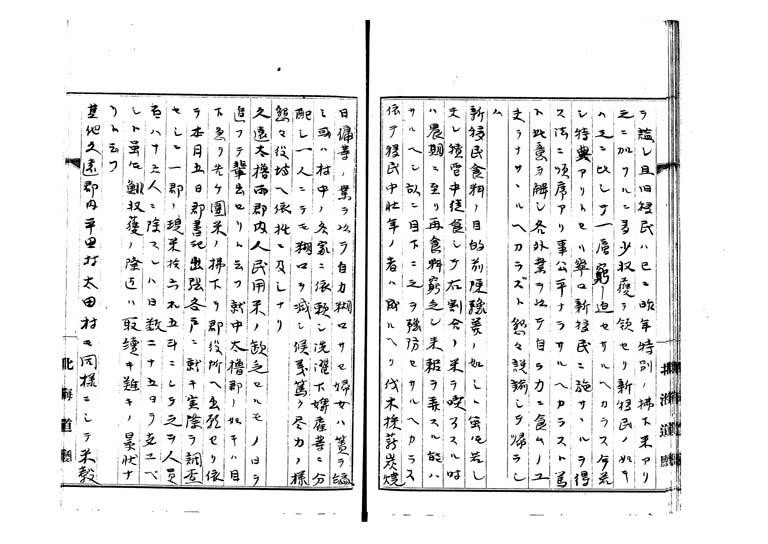 ラ論シ且旧移民ハ已ニ昨年特別ノ拂下米アリ
之ニ加フルニ多少収穫ヲ領セリ新移民ノ如キ
ハ之ニ比シテ一層窮迫セサルヘカラス今若
シ特典アリトセハ寧ロ新移民ニ施サヽルヲ得
ス法ニ順序アリ事公平ナラサルヘカラスト篤
ト此意ヲ解シ各外業ヲ以テ自ラ力ニ食ムノ工
夫ヲナサヽルヘカラズト懇々説諭シテ帰ラシ
ム
新移民食料ノ目的前陳豫算ノ如シト雖モ若シ
夫レ積雪中徒食シテ在割合ノ米ヲ喫了スル時
ハ農期ニ至リ再食料窮乏シ来耜ヲ弄スル能ハ
サルヘシ故ニ目下ニ之ヲ強防セサルヘカラス
依テ移民中壮年ノ者ハ成ルヘク伐木採薪炭焼
日傭等ノ業ヲ以テ自力糊口サセ婦女ハ筵ヲ編
ミ或ハ村中ノ各家ニ依頼シ洗濯下婢産等ニ分
配シ一人ニテモ糊口ヲ減シ候義篤ク尽力ノ様
懇々役場ヘ依托ニ及シナリ
久遠太櫓両郡内人民用米ノ缺乏セルモノ日ヲ
追フテ輩出セリト云フ就中太櫓郡ノ如キハ目
下急リ先ケ圍米ノ拂下ヲ郡役所ヘ出願セリ依
テ本月五日郡書記出張各戸ニ就キ実際ヲ調査
セシニ一郡ノ現米拾六石五斗ニシテ之ヲ人員
百八十三人ニ除スレハ日数二十五日ヲ支ユヘ
シト雖モ鯡収獲ノ際迄ハ取續キ難キノ景状ナ
リト云フ
其他久遠郡内平田村太田村モ同様ニシテ米穀
北海道廳
北海道廳